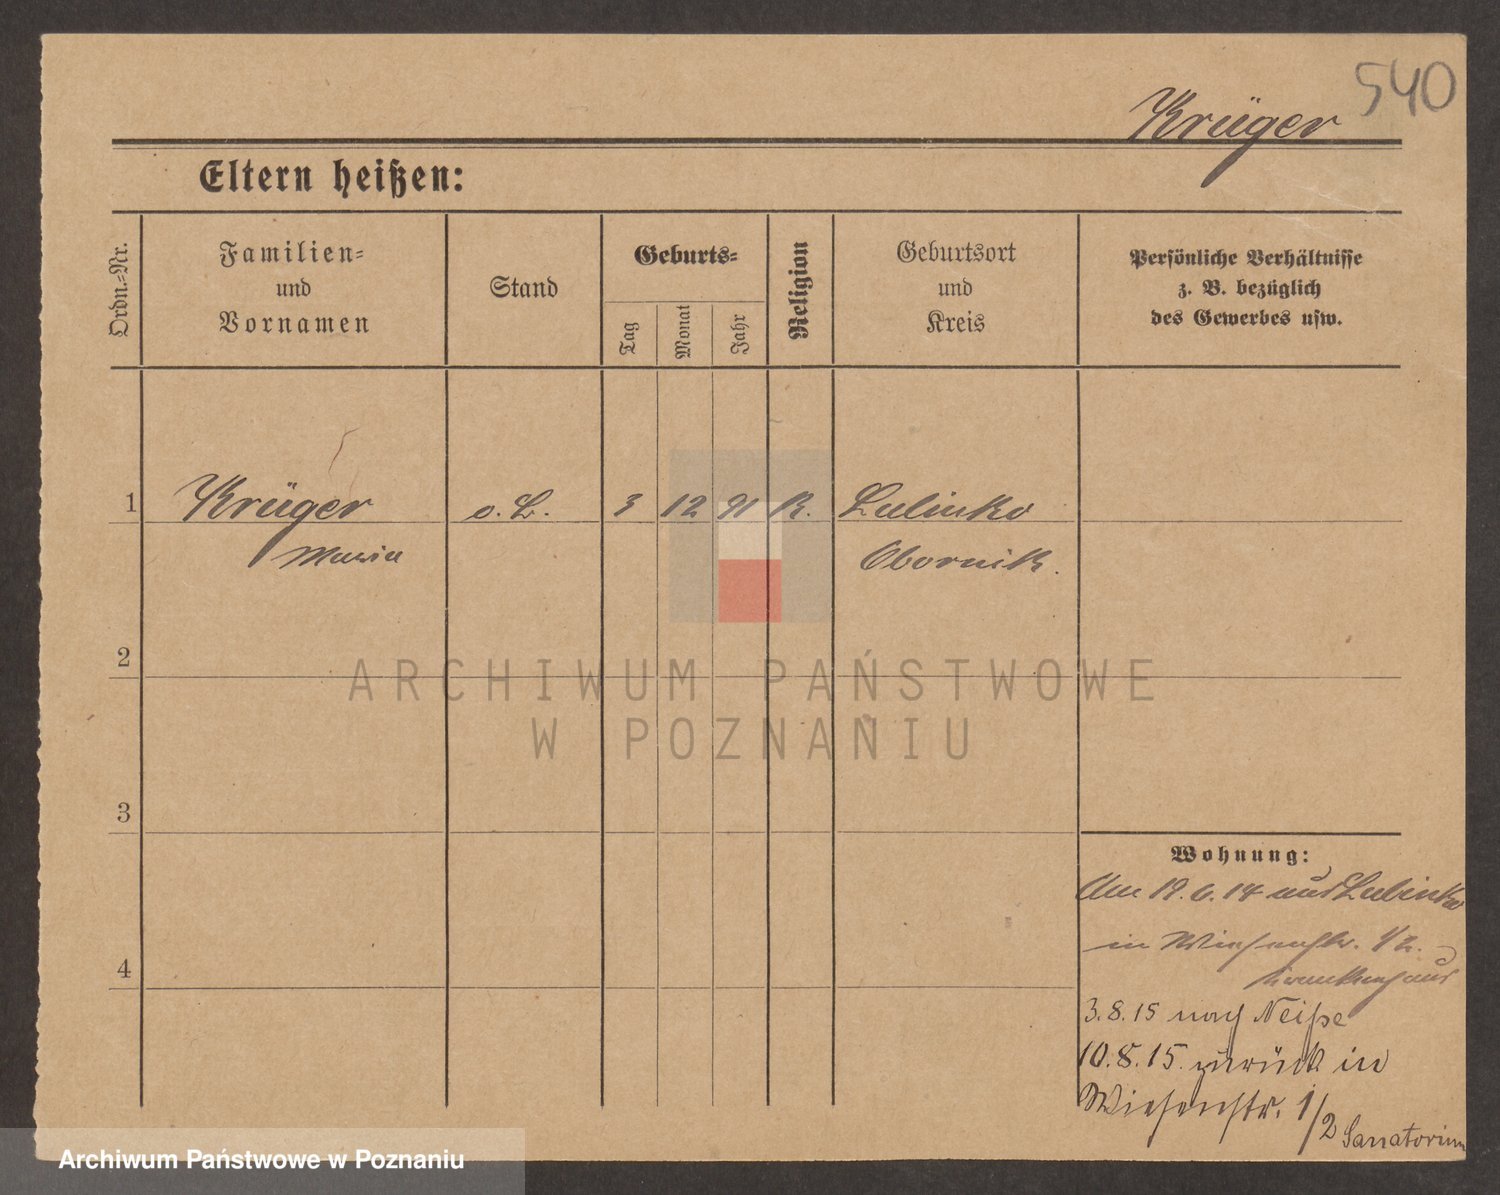 540
Krüger
Eltern heißen:
Ordn.-Nr.
Familien-
und
Vornamen
Stand
Geburts-
Tag
Monat
Jahr
Religion
Geburtsort
und
Kreis
Persönliche Verhältnisse
z. B. bezüglich
des Gewerbes usw.
1 Krüger o. B. 3 12 91 K. Lulinko
Maria Obornik.
2
3
4
Wohnung:
Am 19. 6. 14 aus Lulinko
in Wiesenstr. 1/2.
Krankenhaus
3.8.15 nach Neiße
10.8.15. zurück in
Wiesenstr. 1/2 Sanatorium
ARCHIWUM PAŃSTWOWE
W POZNANIU
Archiwum Państwowe w Poznaniu